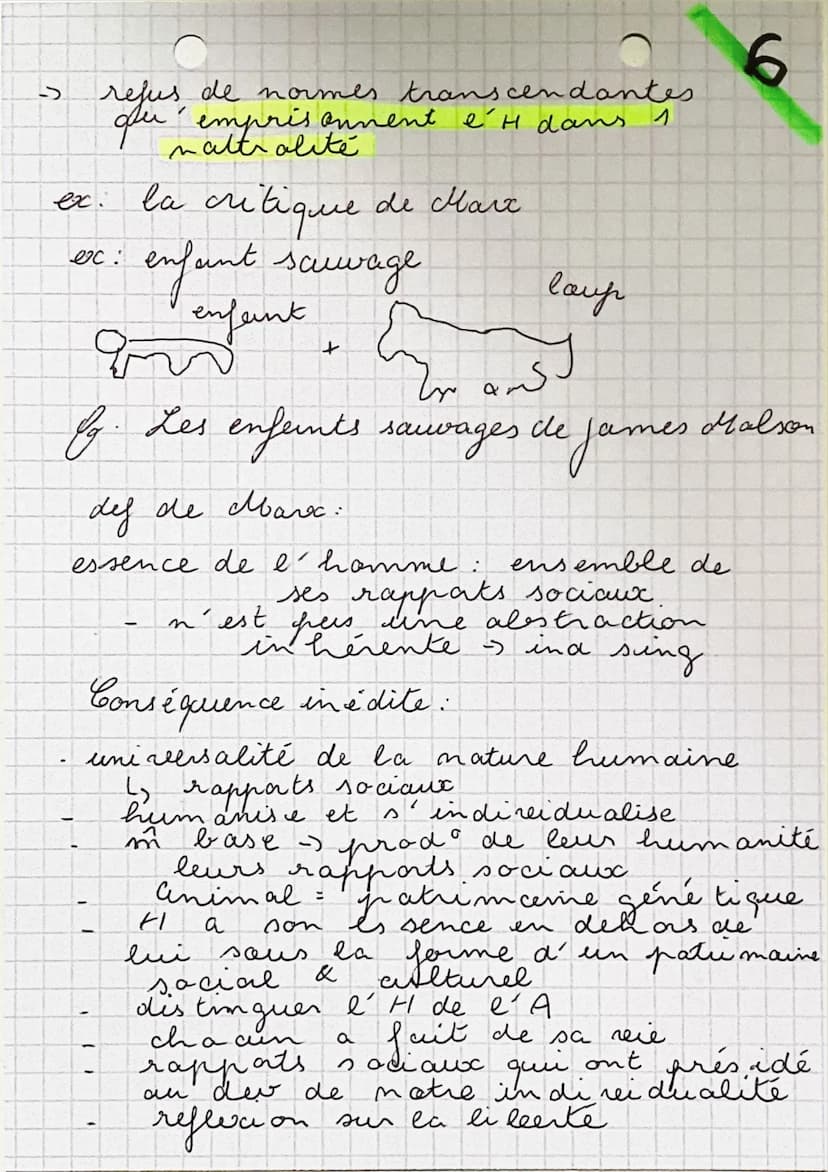 6
-> refus de normes transcendantes
qu' emprisonnent l'H dans 1
naturalité
ex: la critique de Marx
ex: enfant sauvage
enfant
loup
+
Les enfants sauvages de James Malson
def de Marx:
essence de l'homme: ensemble de
ses rapports sociaux
- n'est pas une abstraction
inhérente -> ind sing
Conséquence inédite:
- universalité de la nature humaine
↳ rapports sociaux
- humanise et s'individualise
- m̂ base -> prod° de leur humanité
leurs rapports sociaux
- animal = patrimoine génétique
- H a son essence en dehors de
lui sous la forme d'un patrimoine
social & culturel
- distinguer l'H de l'A
- chacun a fait de sa vie
- rapports sociaux qui ont présidé
au dev de notre individualité
- reflexion sur la liberté